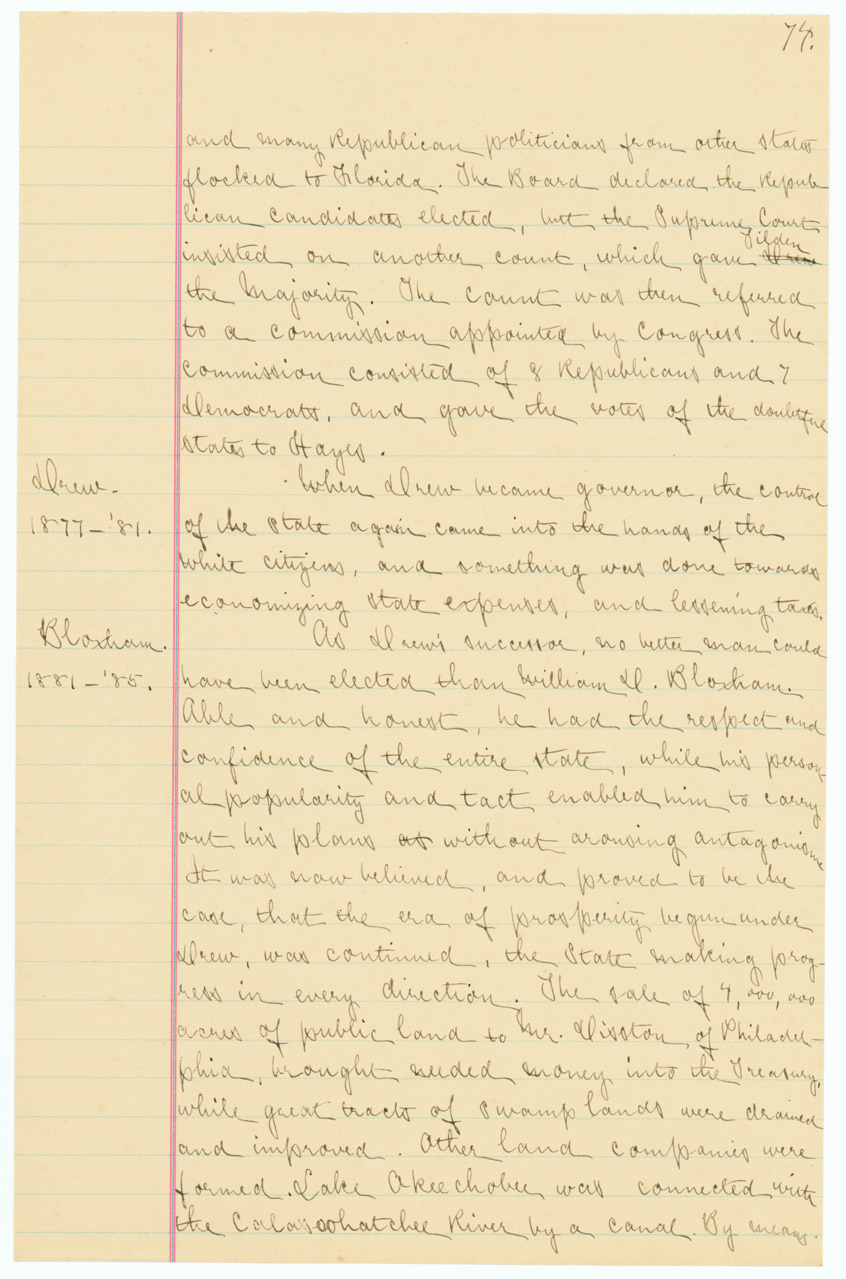 74.
and many Republican politicians from other states
flocked to Florida. The Board declared the Repub-
lican candidates elected, but the Supreme Court
Tilden
insisted on another count, which gave Drew
the Majority. The count was then referred
to a commission appointed by Congress. The
commission consisted of 8 Republicans and 7
Democrats, and gave the votes of the doubtful
states to Hayes.
Drew- When Drew became governor, the control
1877-'81. of the State again came into the hands of the
white citizens, and something was done towards
economizing state expenses, and lessening taxes.
Bloxham. As Drew's successor, no better man could
1881-'85. have been elected than William D. Bloxham.
Able and honest, he had the respect and
confidence of the entire state, while his person-
al popularity and tact enabled him to carry
out his plans as without arousing antagonism
It was now believed, and proved to be the
case, that the era of prosperity begun under
Drew, was continued, the State making prog-
ress in every direction. The sale of 4,000,000
acres of public land to Mr. Disston of Philadel-
phia, brought needed money into the Treasury,
while great tracts of swamp lands were drained
and improved. Other land companies were
formed. Lake Okeechobee was connected with
the Calasoohatchee River by a canal. By means